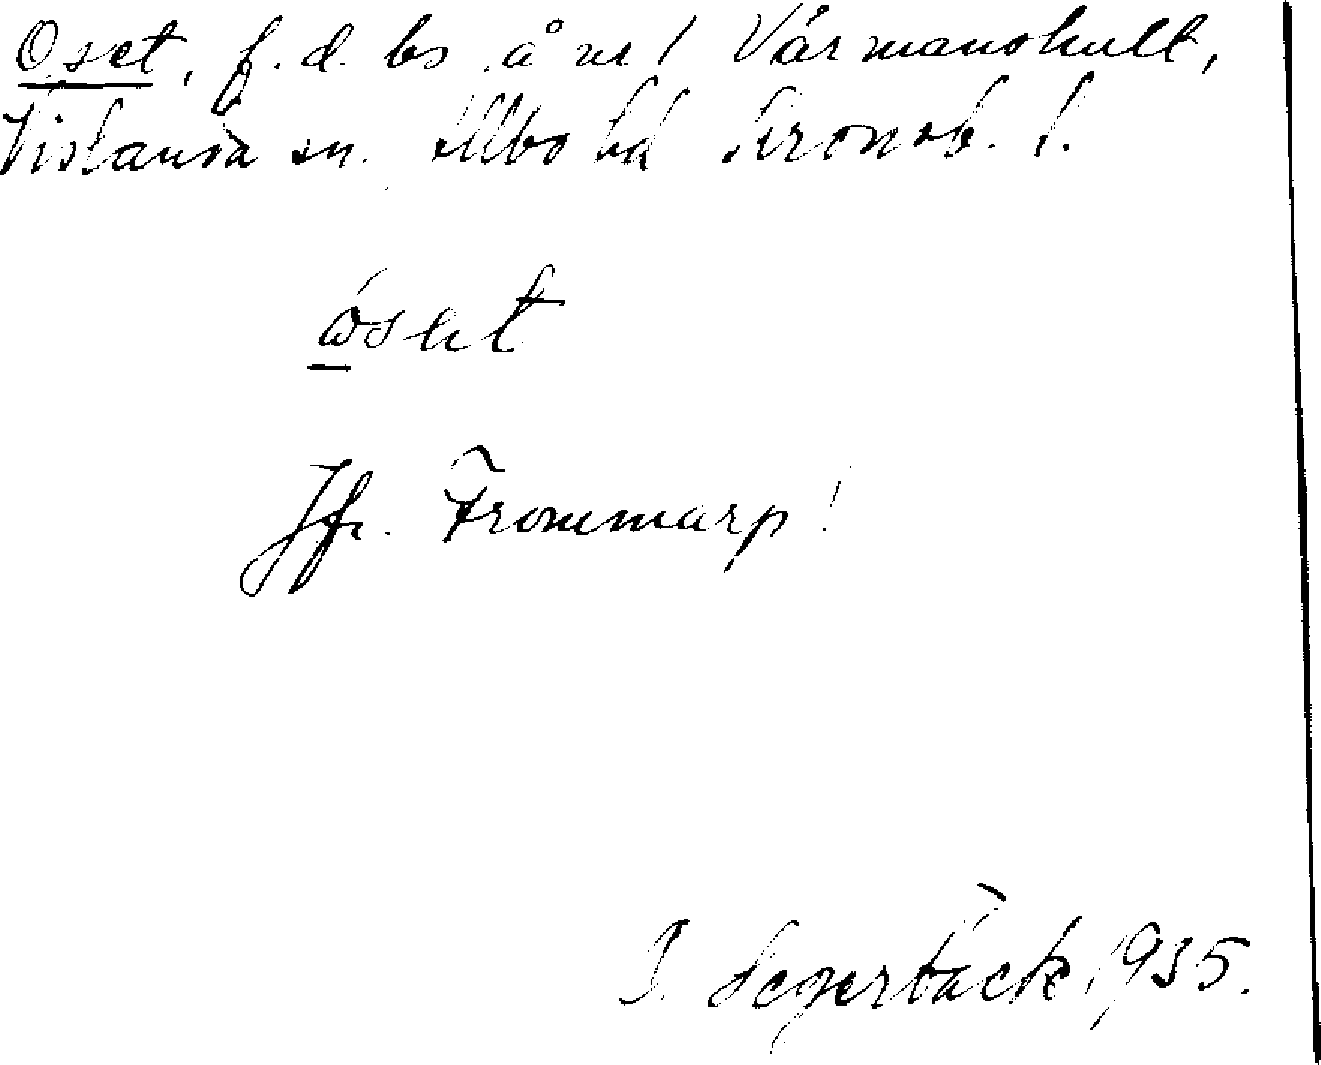 Oset, f.d. bs å nr 1 Vårmanshult,
Vislanda sn. Allbo hd Kronob. l.
óset
Jfr. Frommarp!
I. Segerbäck, 1935.